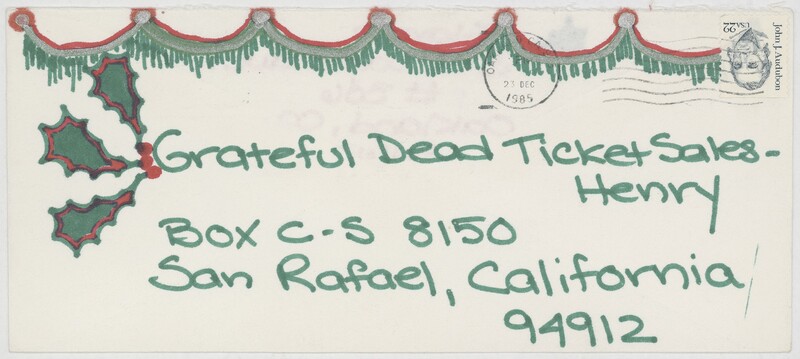 John J. Audubon
USA 22
23 DEC
1985
Grateful Dead Ticket Sales-
Henry
Box C-S 8150
San Rafael, California
94912